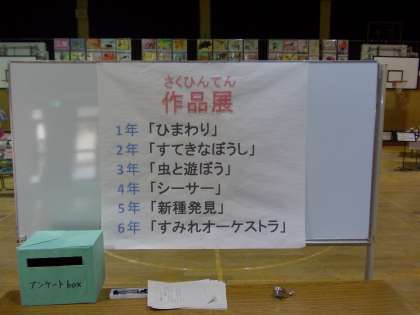 さくひんてん
作品展
1年「ひまわり」
2年「すてきなぼうし」
3年「虫と遊ぼう」
4年「シーサー」
5年「新種発見」
6年「すみれオーケストラ」
アンケートbox